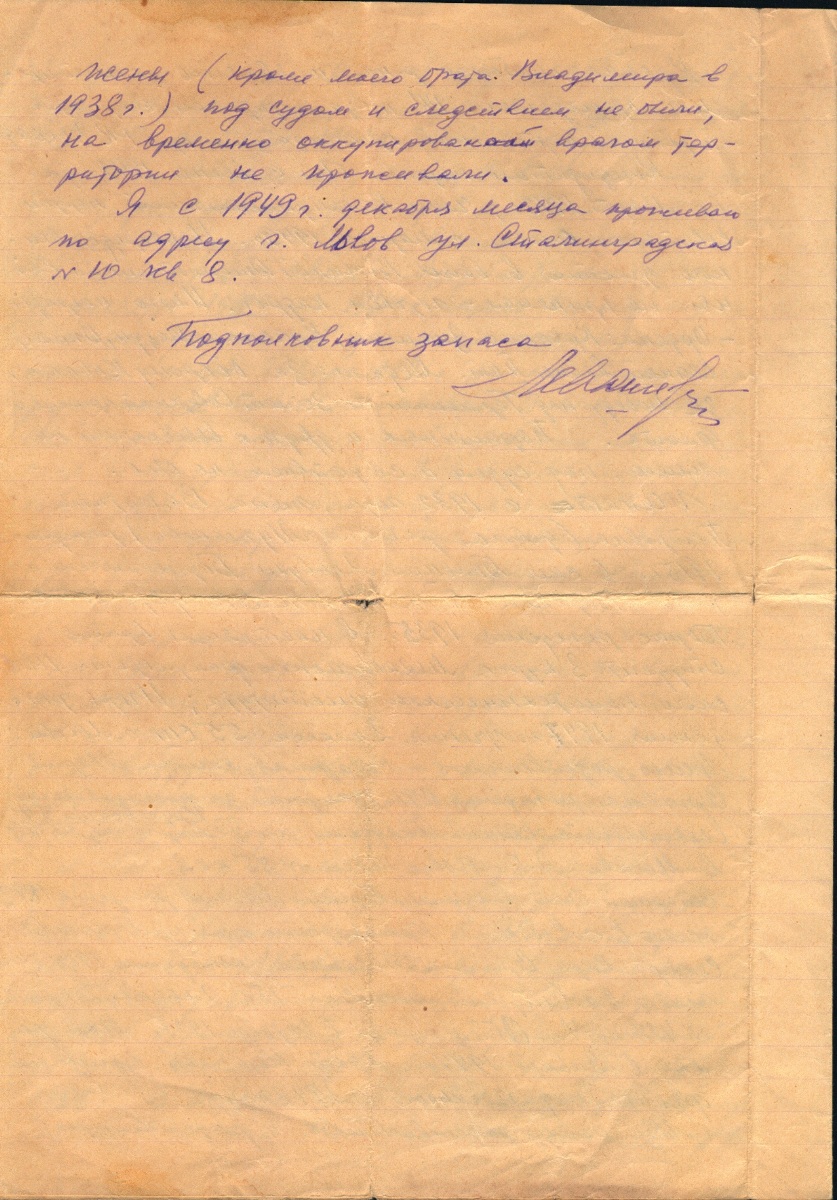 жены (кроме моего брата Владимира в
1938г.) под судом и следствием не были,
на временно оккупированной врагом тер-
ритории не проживали.
Я с 1949г. декабря месяца проживаю
по адресу г. Львов ул. Сталинградская
№ 10 кв 8.
Подполковник запаса